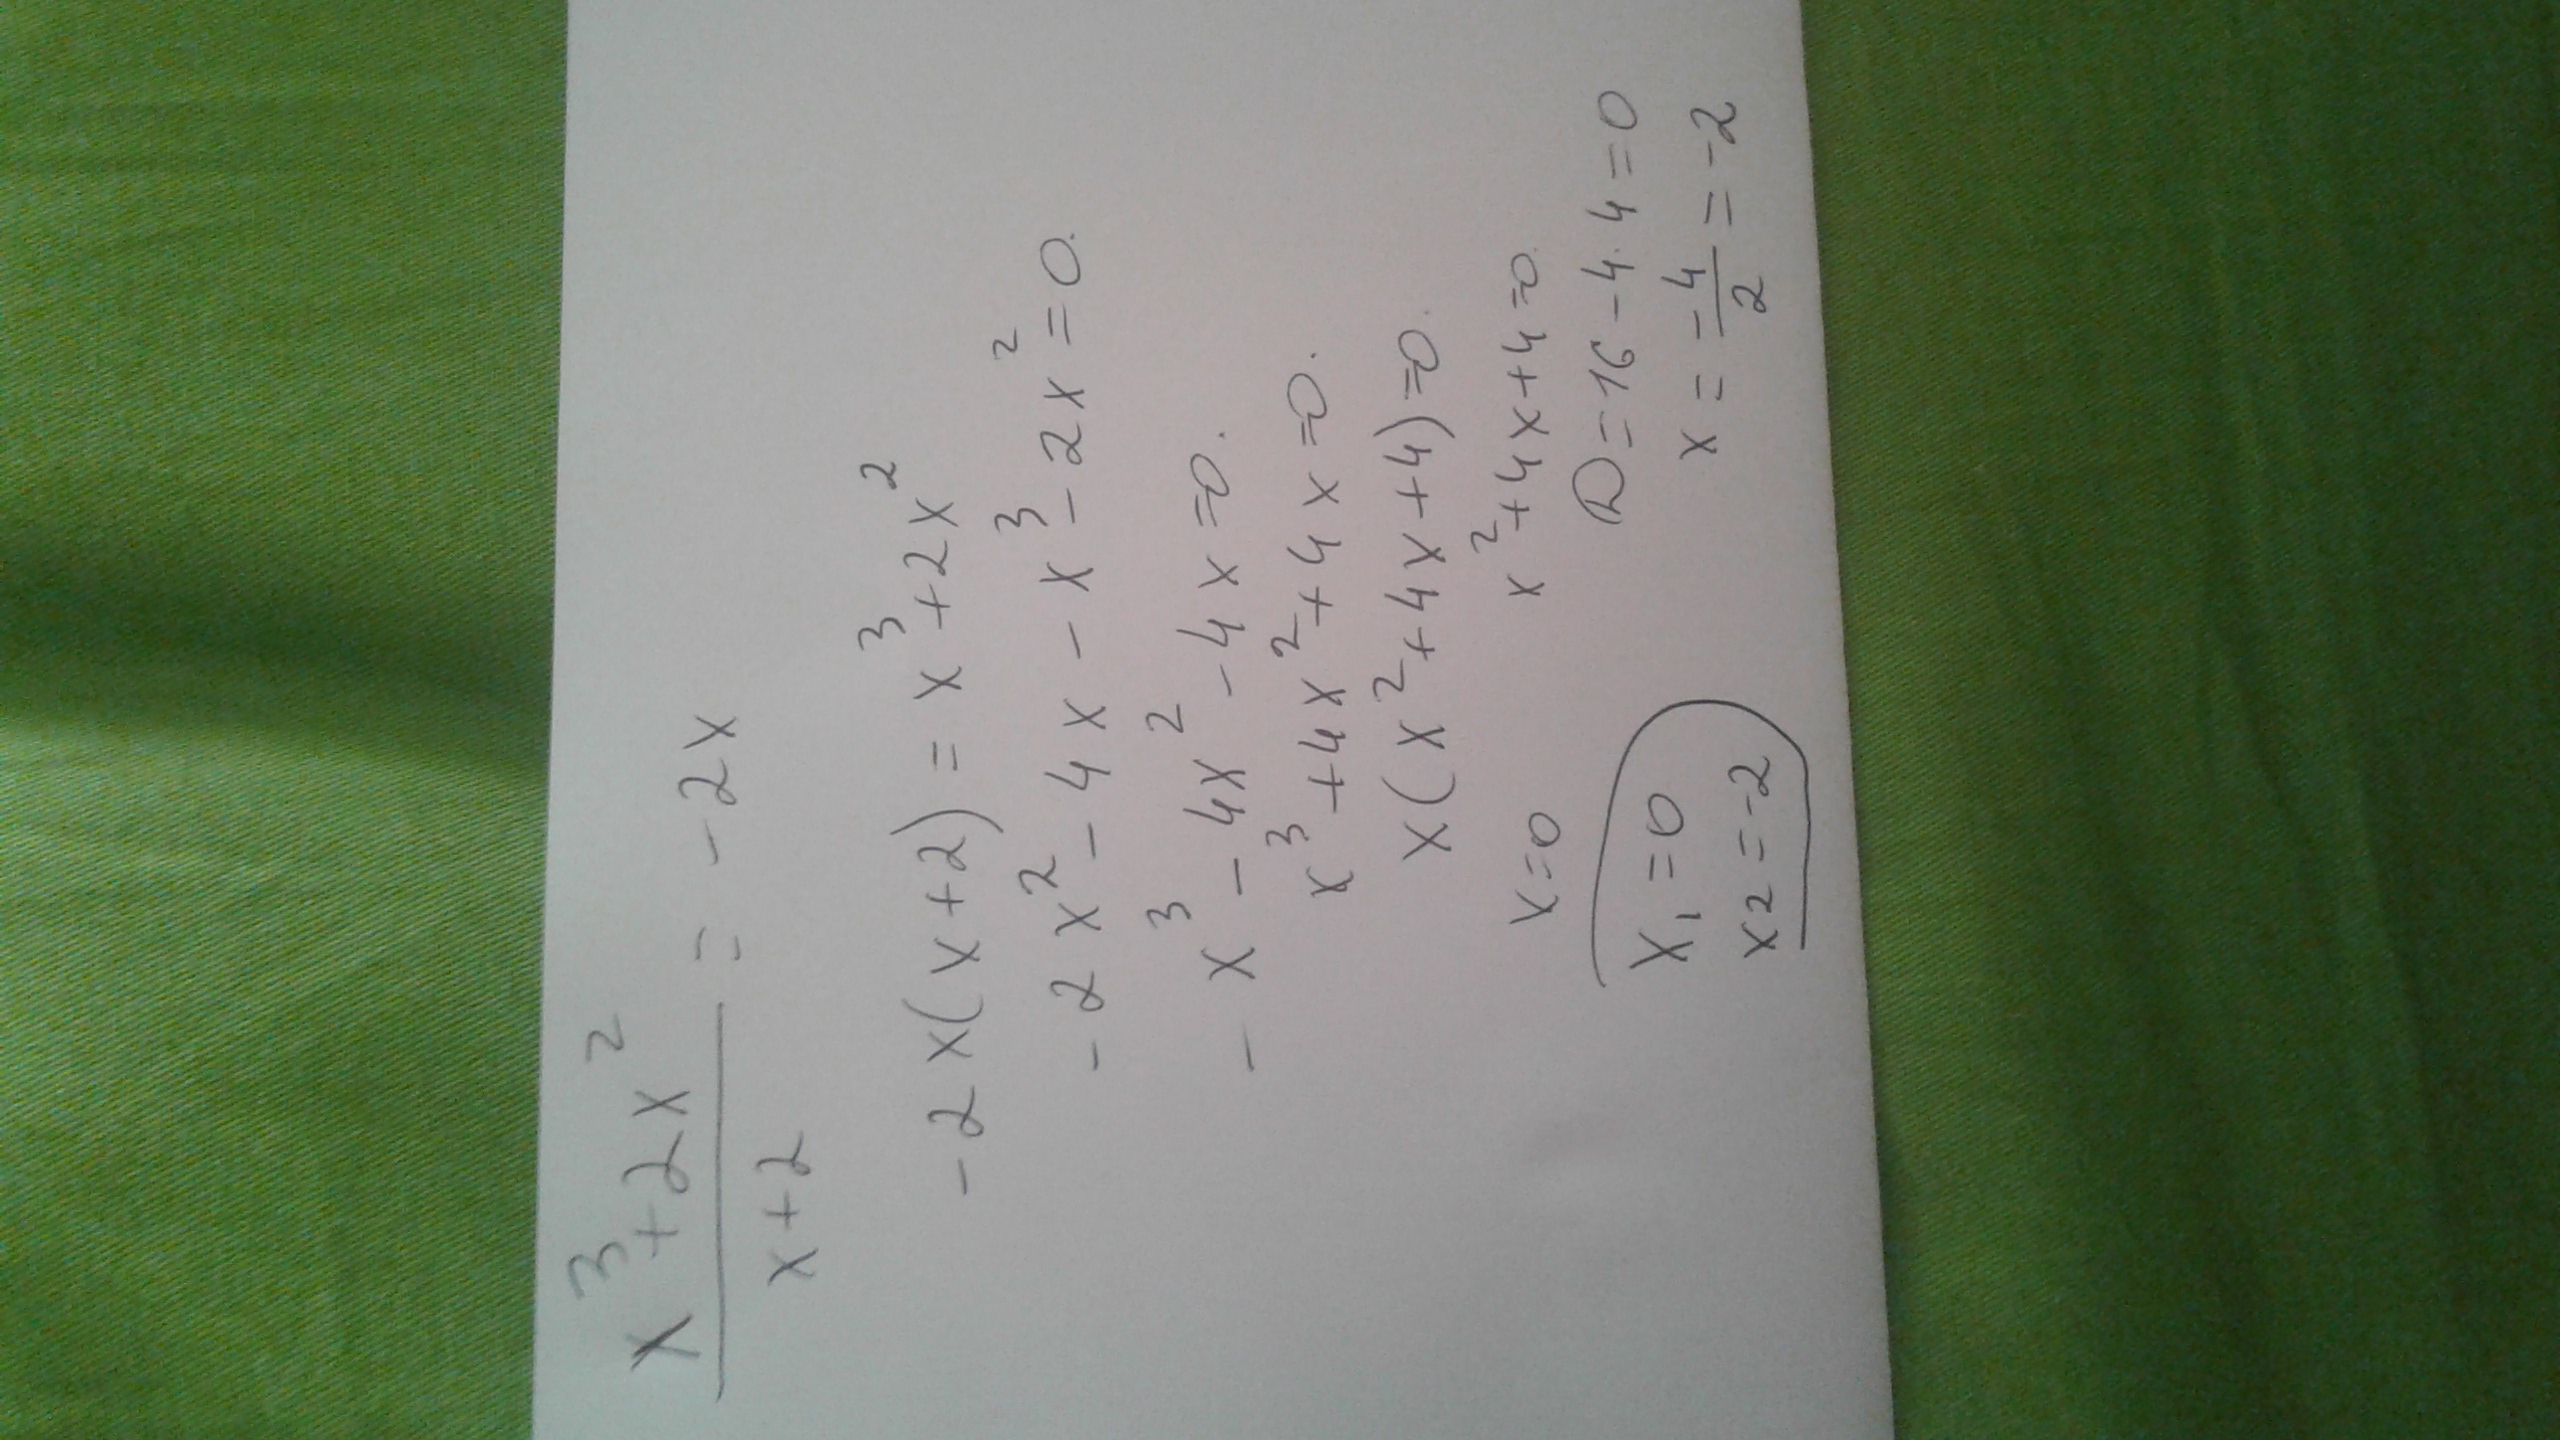 x³+2x²
——— = -2x
x+2
-2x(x+2) = x³+2x²
-2x²-4x-x³-2x²=0.
-x³-4x²-4x=0.
x³+4x²+4x=0.
x(x²+4x+4)=0.
x=0 x²+4x+4=0.
D=16-4·4=0
x₁=0 x=-4/2=-2
x2=-2